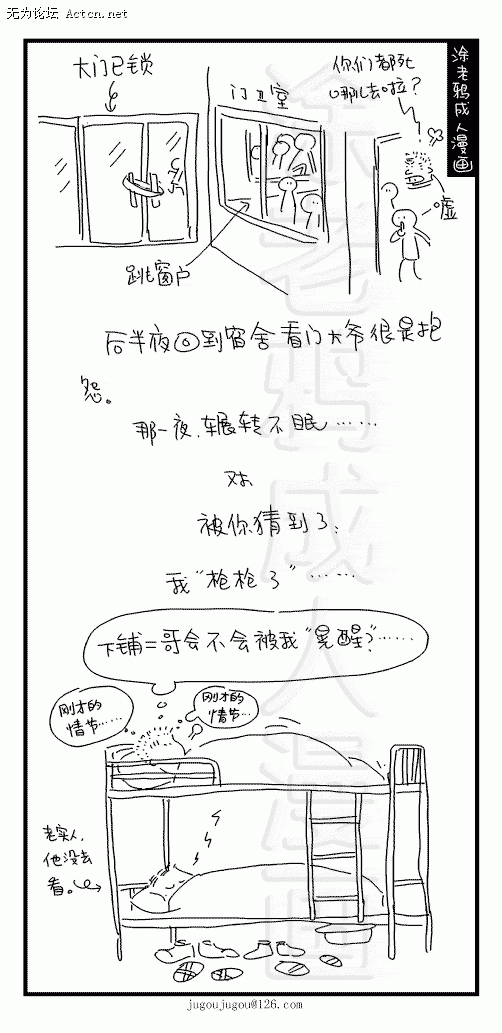 无为论坛 Actcn.net
涂老鸦成人漫画
大门已锁
门卫室
你们都死
哪儿去啦？
嘘
跳窗户
后半夜回到宿舍看门大爷很是抱
怨。
那一夜，辗转不眠……
对
被你猜到了，
我“枪枪了”……
下铺二哥会不会被我“晃醒？”……
刚才的
情节……
刚才的
情节…
老实人，
他没去
看。
jugoujugou@126.com
涂老鸦成人漫画